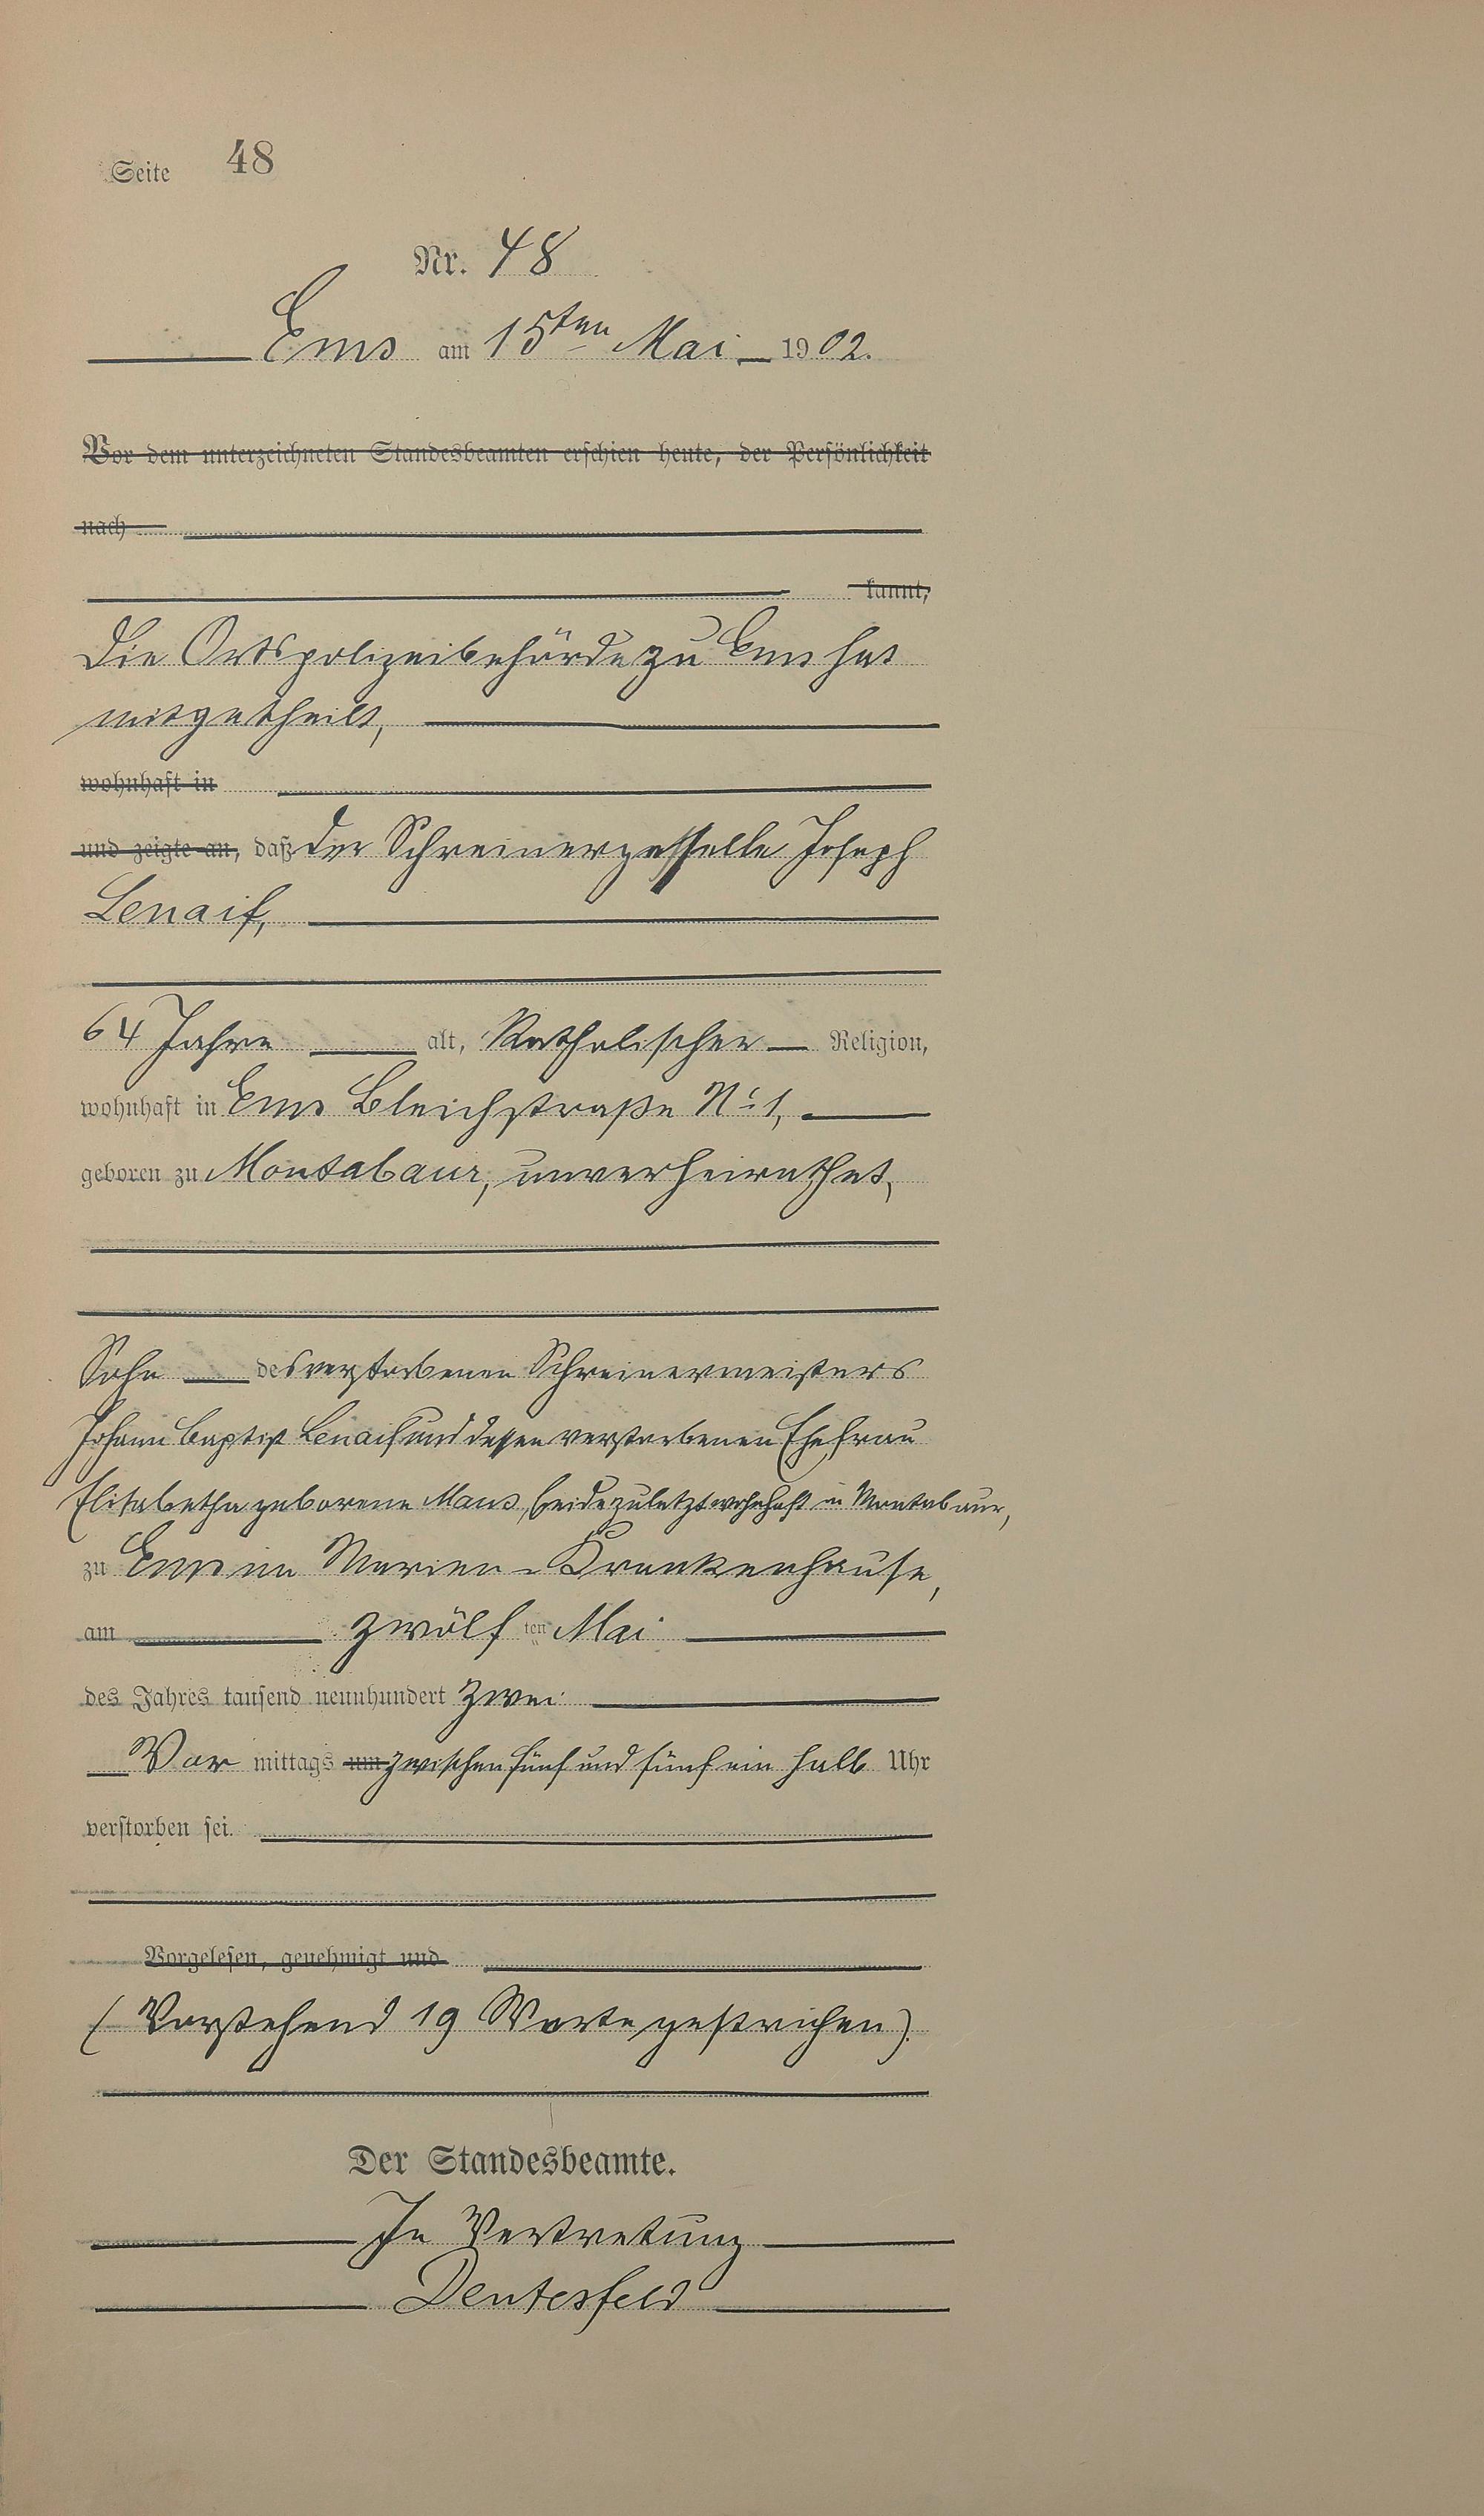 Seite 48
Nr. 48
Ems am 15ten Mai 1902.
Vor dem unterzeichneten Standesbeamten erschien heute, der Persönlichkeit
nach
kannt,
Die Ortspolizeibehörde zu Ems hat
mitgetheilt,
wohnhaft in
und zeigte an, daß der Schreinergesselle Joseph
Lenaif,
64 Jahre alt, Katholischer Religion,
wohnhaft in Ems Bleichstraße No 1,
geboren zu Montabaur, unverheirathet,
Sohn des verstorbenen Schreinermeisters
Johann Baptist Lenaif und dessen verstorbenen Ehefrau
Elisabetha geborene Maus, beide zuletzt wohnhaft in Montabaur,
zu Ems im Marien-Krankenhause,
am zwölf ten Mai
des Jahres tausend neunhundert zwei
Vor mittags um zwischen fünf und fünf ein halb Uhr
verstorben sei.
Vorgelesen, genehmigt und
(Vorstehend 19 Worte gestrichen).
Der Standesbeamte.
In Vertretung
Dentesfeld